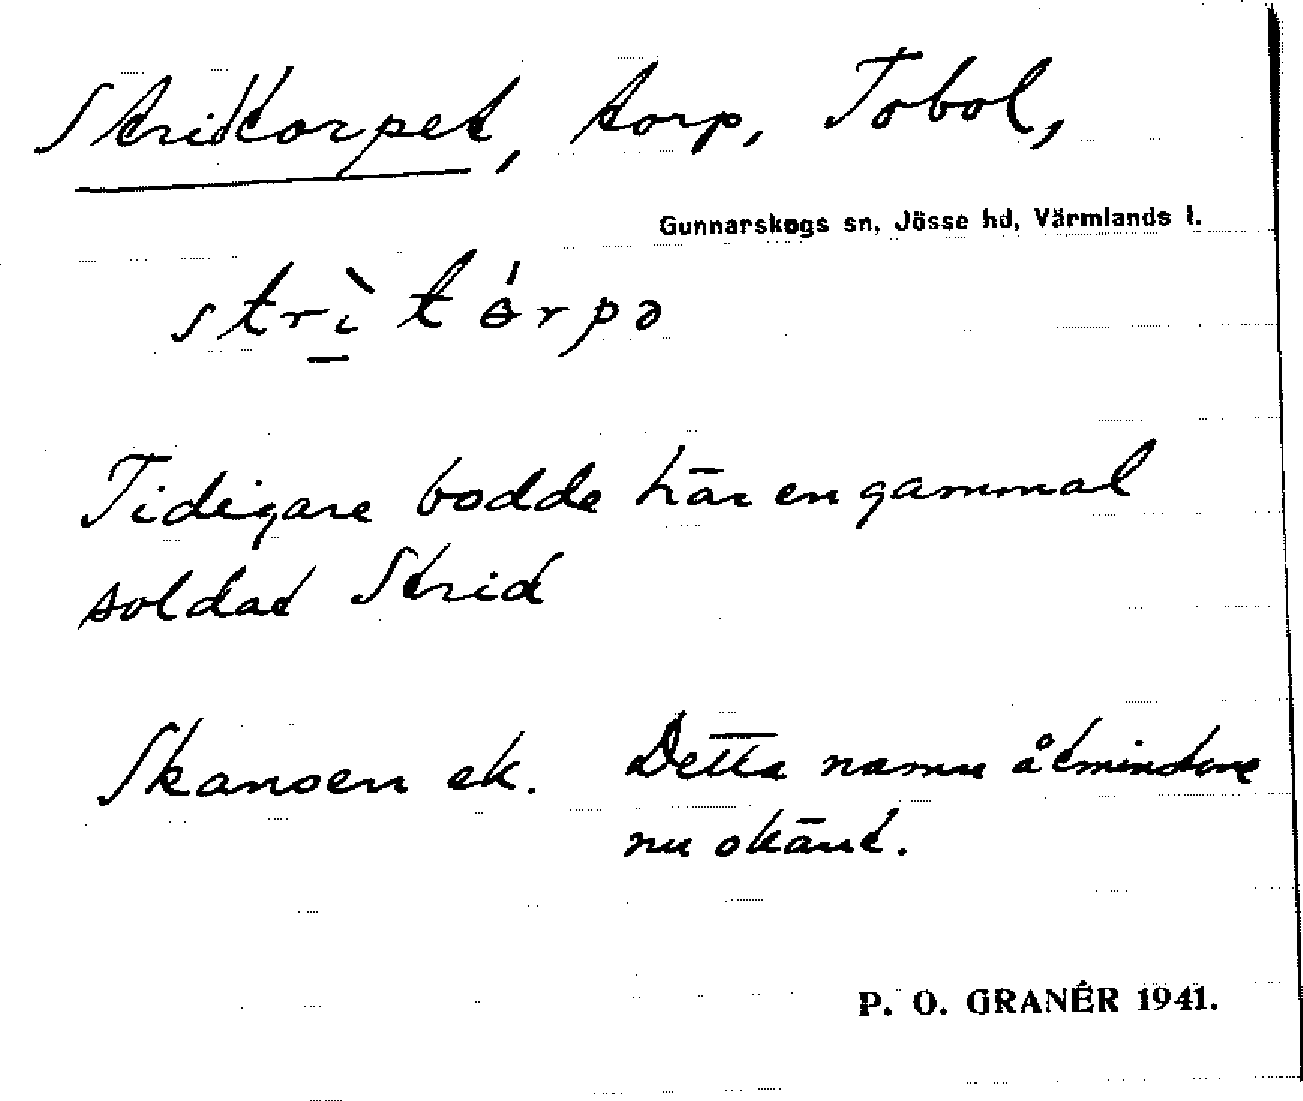 Stridtorpet, torp, Tobol,
Gunnarskogs sn, Jösse hd, Värmlands l.
strı̀ tɵ́rpə
Tidigare bodde här en gammal
soldat Strid
Skansen ek. Detta namn åtminstone
nu okänt.
P. O. GRANÉR 1941.